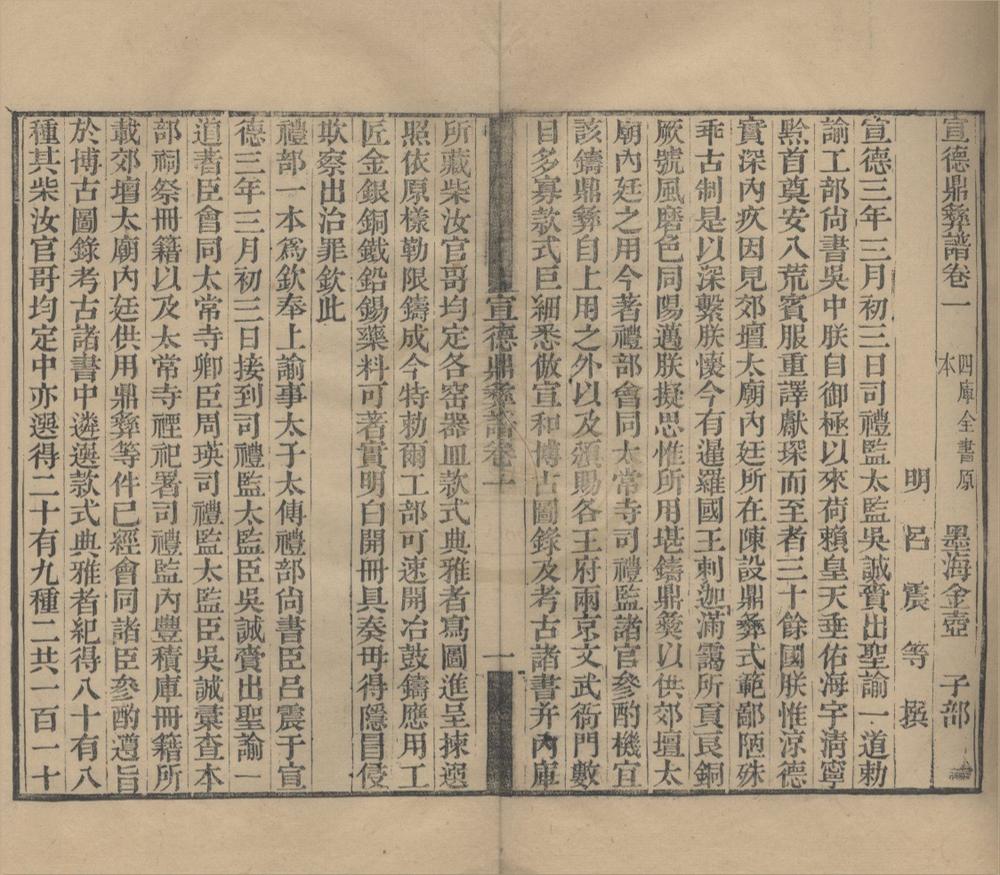 宣德鼎彝譜卷一 四庫全書原本 墨海金壺 子部
明 呂 震 等 撰
宣德三年三月初三日司禮監太監吳誠賫出聖諭一道勅
諭工部尚書吳中朕自御極以來荷賴皇天垂佑海宇清寧
黔首奠安八荒賓服重譯獻琛而至者三十餘國朕惟涼德
實深內疚因見郊壇太廟內廷所在陳設鼎彝式範鄙陋殊
乖古制是以深繫朕懷今有暹羅國王剌迦滿靄所貢良銅
厥號風磨色同陽邁朕擬思惟所用堪鑄鼎彝以供郊壇太
廟內廷之用今著禮部會同太常寺司禮監諸官參酌機宜
該鑄鼎彝自上用之外以及頒賜各王府兩京文武衙門數
目多寡款式巨細悉倣宣和博古圖錄及考古諸書并內庫
宣德鼎彝譜卷一 一
所藏柴汝官哥均定各窑器皿款式典雅者寫圖進呈揀選
照依原樣勒限鑄成今特勅爾工部可速開冶鼓鑄應用工
匠金銀銅鐵鉛錫藥料可著實明白開冊具奏毋得隱目侵
欺察出治罪欽此
禮部一本爲欽奉上諭事太子太傅禮部尚書臣呂震于宣
德三年三月初三日接到司禮監太監臣吳誠賫出聖諭一
道著臣會同太常寺卿臣周瑛司禮監太監臣吳誠彙查本
部祠祭冊籍以及太常寺禋祀署司禮監內豐積庫冊籍所
載郊壇太廟內廷供用鼎彝等件已經會同諸臣參酌遵旨
於博古圖錄考古諸書中遴選款式典雅者紀得八十有八
種其柴汝官哥均定中亦選得二十有九種二共一百一十